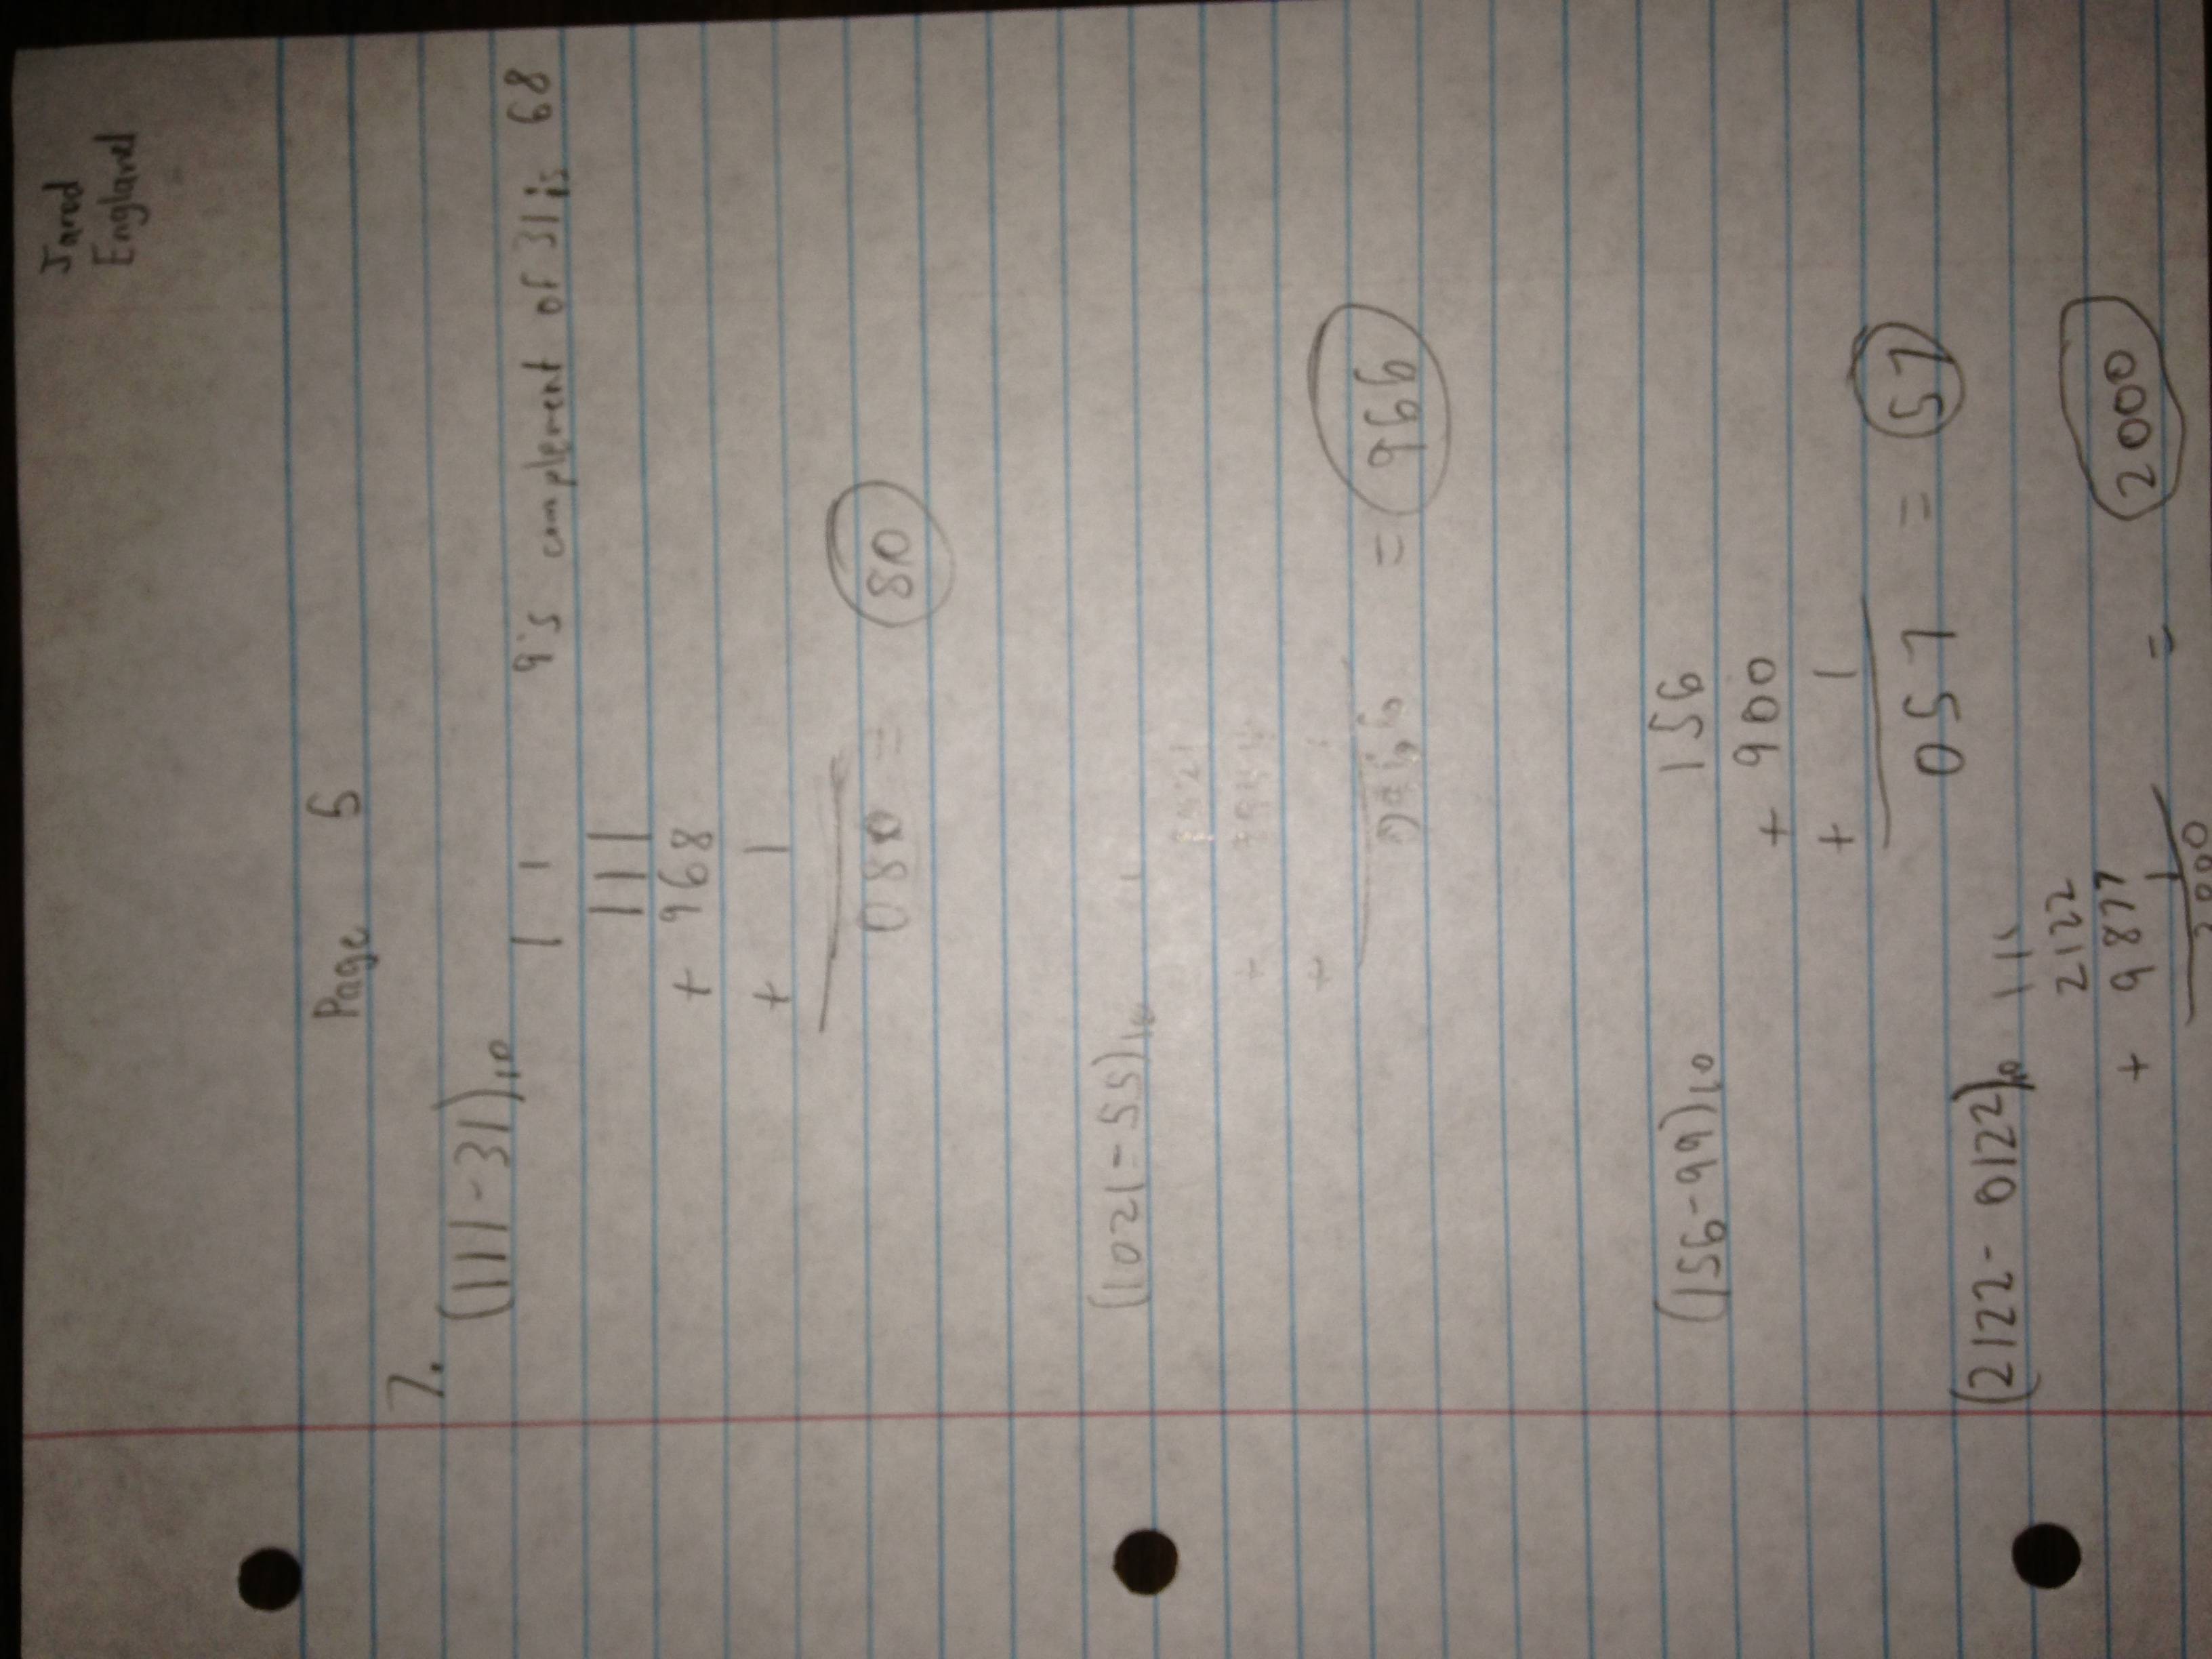 Jarod
England
Page 5
7.
(111-31)10
1 1 9's complement of 31 is 68
111
+ 968
+ 1
080 = 80
(1021-55)10 1
1021
+
+ 1
= 966
(156-99)10 156
+ 900
+ 1
057 = 57
(2122- 0122)10 1 1 1
2122
+ 9877
1
2000 = 2000